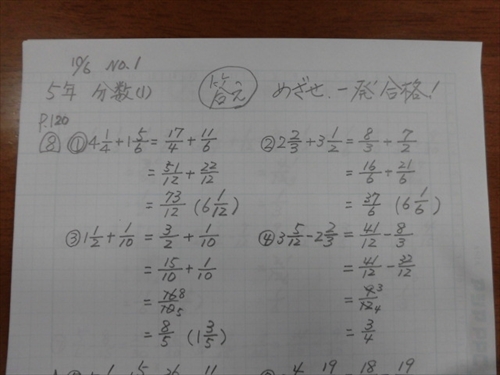 10/6 No.1
5年 分数(1) 答え めざせ、一発合格!
P.120
⑧ ① 4 1/4 + 1 5/6 = 17/4 + 11/6
= 51/12 + 22/12
= 73/12 (6 1/12)
② 2 2/3 + 3 1/2 = 8/3 + 7/2
= 16/6 + 21/6
= 37/6 (6 1/6)
③ 1 1/2 + 1/10 = 3/2 + 1/10
= 15/10 + 1/10
= 16 8/10 5
= 8/5 (1 3/5)
④ 3 5/12 - 2 2/3 = 41/12 - 8/3
= 41/12 - 32/12
= 9 3/12 4
= 3/4